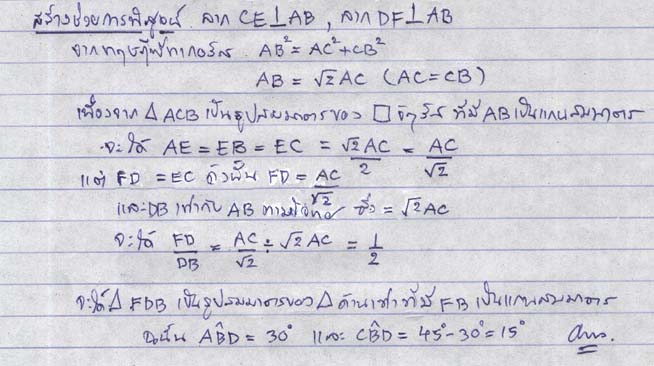 สร้างช่วยการพิสูจน์ ลาก CE⊥AB , ลาก DF⊥AB
จากทฤษฎีพีทาโกรัส AB² = AC²+CB²
AB = √2 AC (AC = CB)
เนื่องจาก △ ACB เป็นรูปสมมาตรของ □ จัตุรัส ที่มี AB เป็นแกนสมมาตร
จะได้ AE = EB = EC = √2 AC/2 = AC/√2
แต่ FD = EC ดังนั้น FD = AC/√2
และ DB เท่ากับ AB ตามโจทย์ ซึ่ง = √2 AC
จะได้ FD/DB = AC/√2 ÷ √2 AC = 1/2
จะได้ △ FDB เป็นรูปสมมาตรของ △ ด้านเท่า ที่มี FB เป็นแกนสมมาตร
ฉะนั้น AB̂D = 30° และ CB̂D = 45°-30° = 15° Ans.